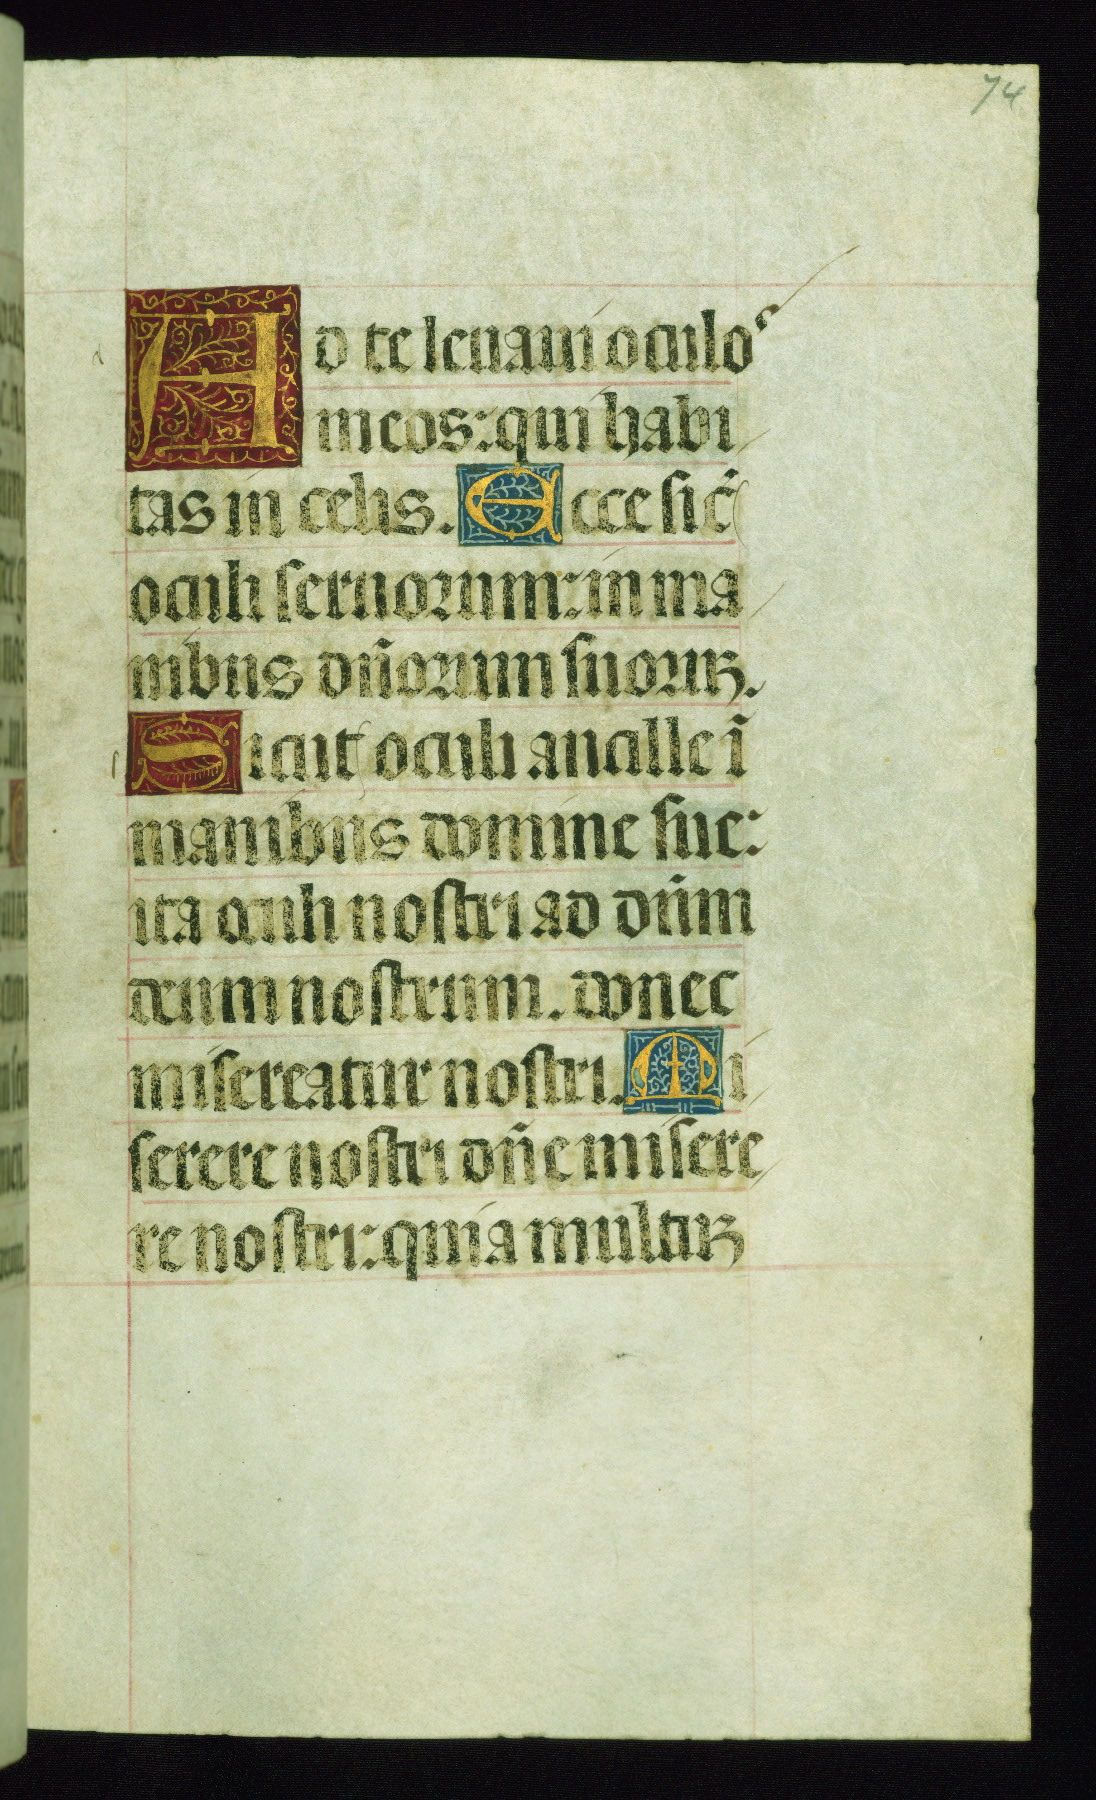 74
Ad te leuaui oculos
meos: qui habi
tas in celis. Ecce sic̄
oculi seruorum: in ma
nibus dn̄orum suorꝝ.
Sicut oculi ancille ī
manibus domine sue:
ita oculi nostri ad dn̄m
deum nostrum. donec
misereatur nostri. Mi
serere nostri dn̄e misere
re nostri: quia multꝝ